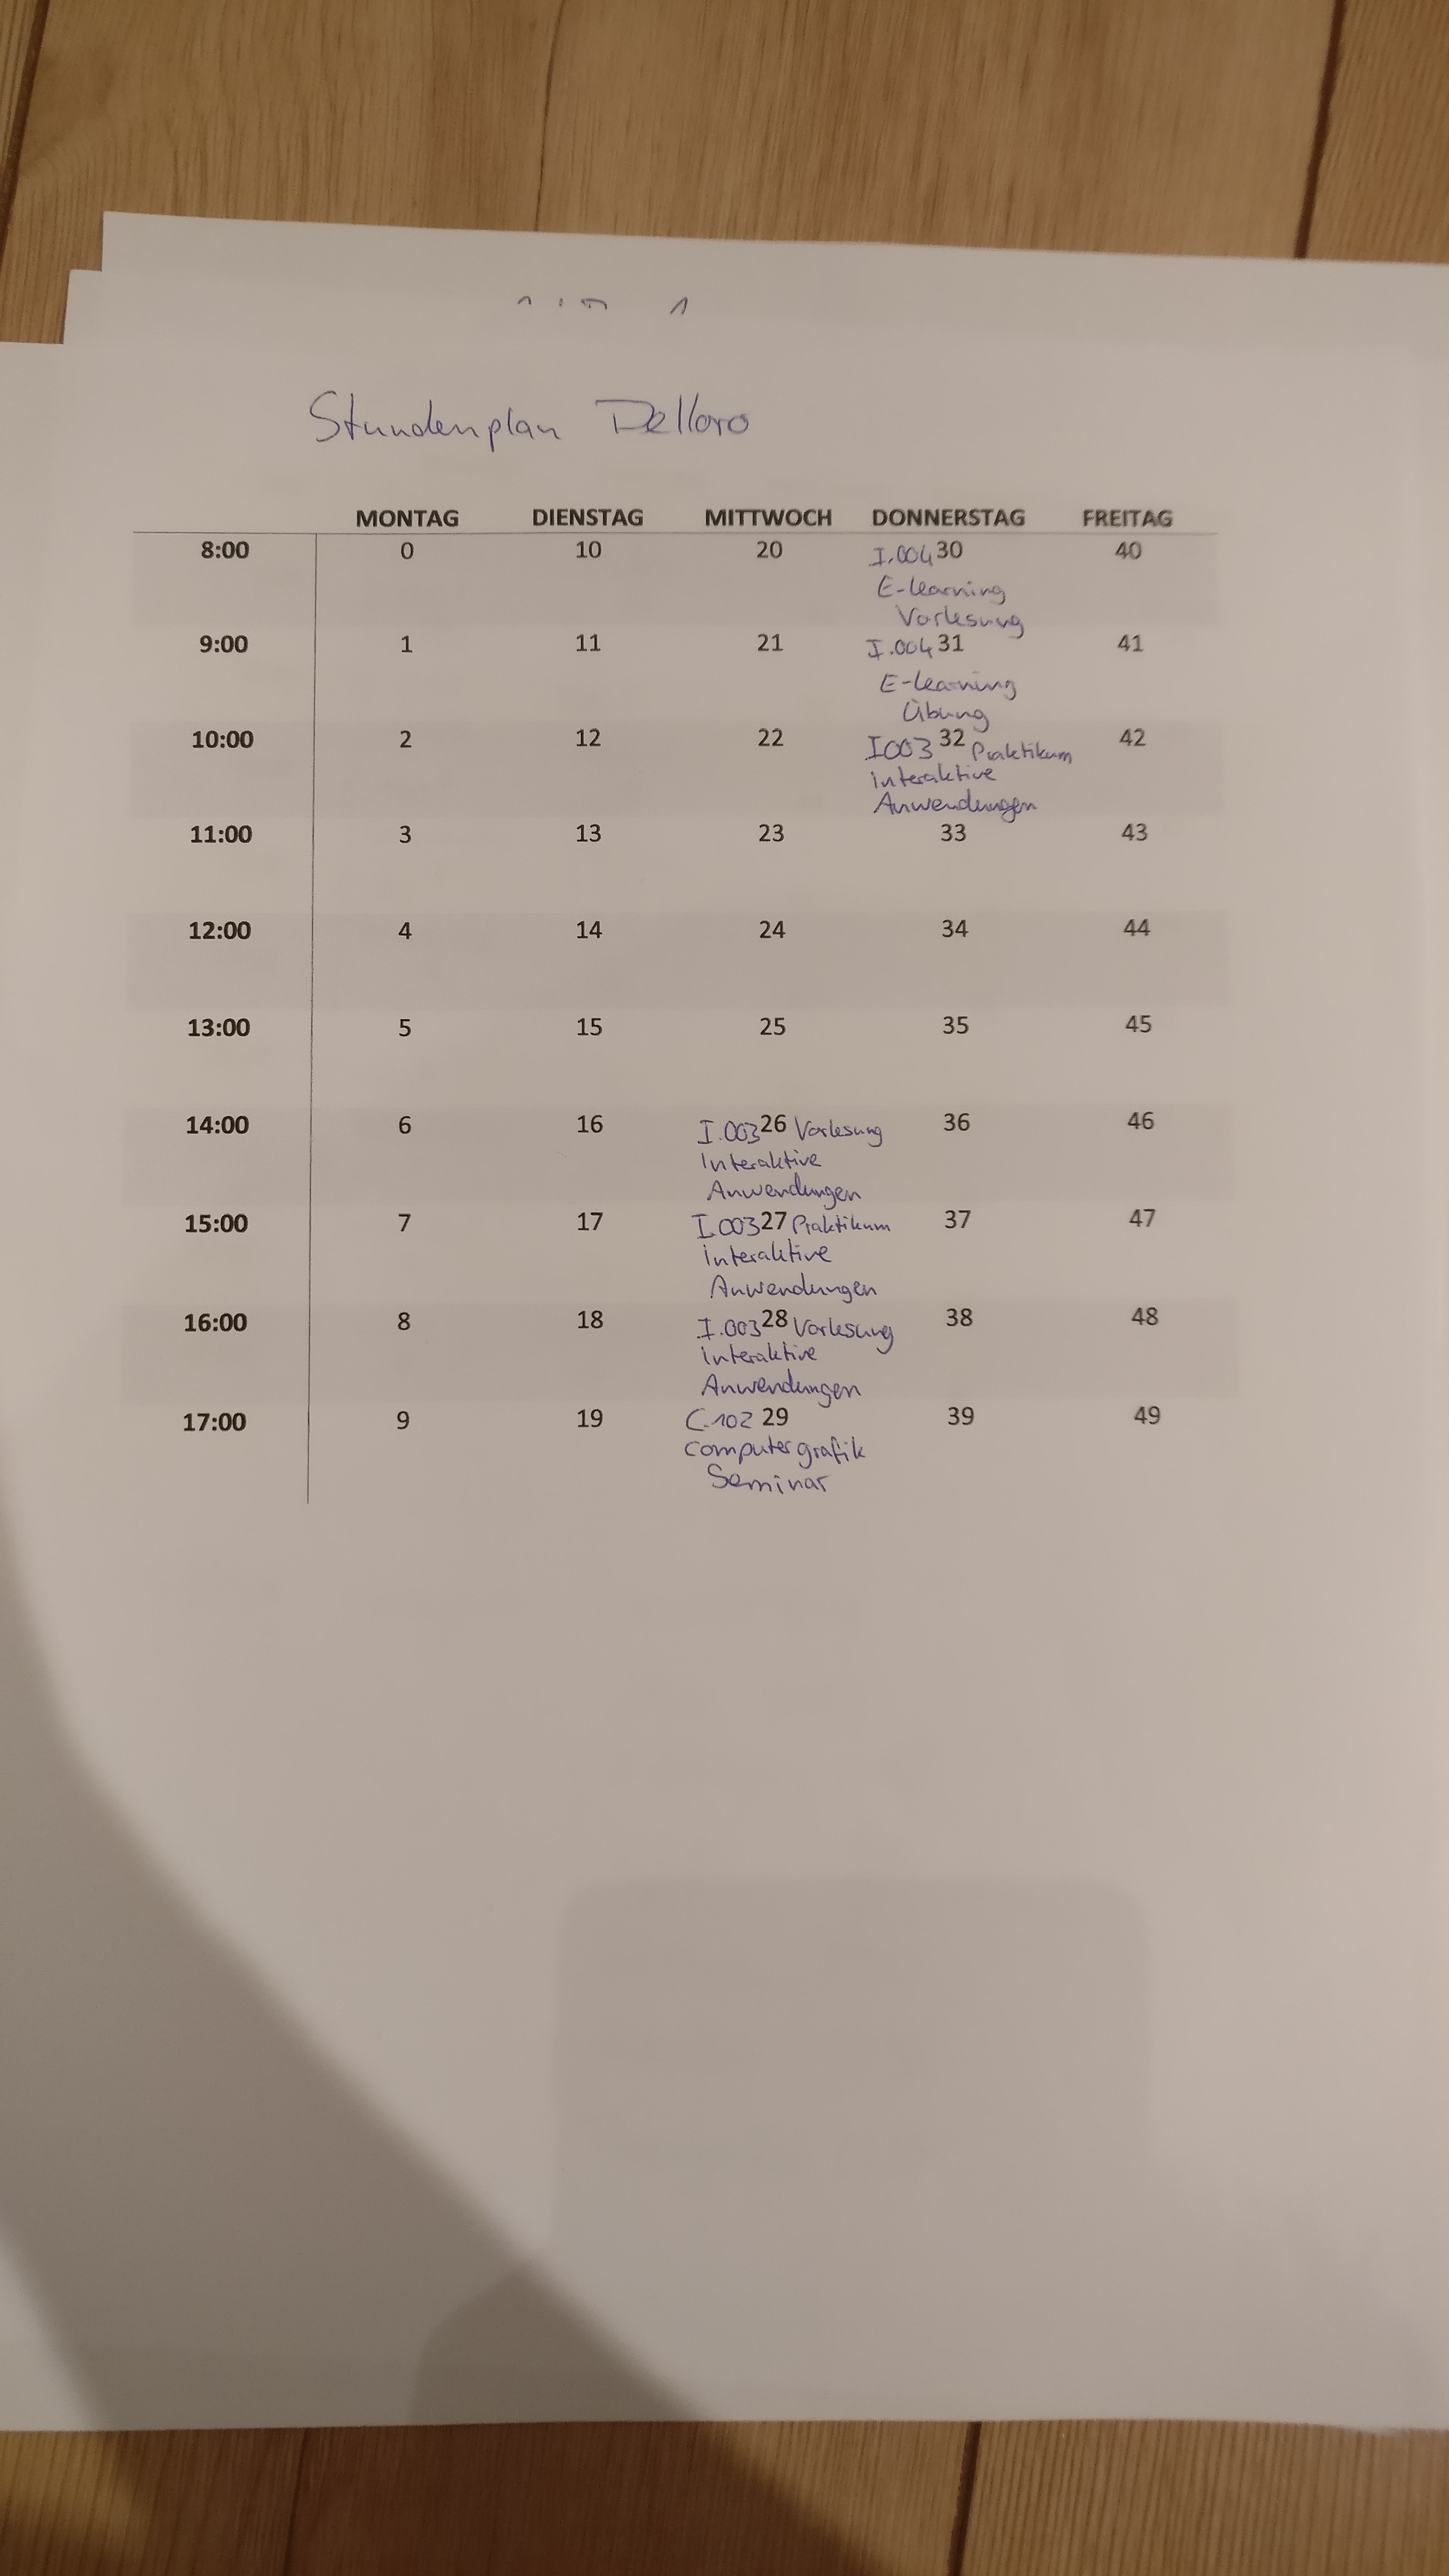 Stundenplan Delloro
MONTAG DIENSTAG MITTWOCH DONNERSTAG FREITAG
8:00 0 10 20 I.004 30 40
E-learning
Vorlesung
9:00 1 11 21 I.004 31 41
E-learning
Übung
10:00 2 12 22 I003 32 Praktikum 42
interaktive
Anwendungen
11:00 3 13 23 33 43
12:00 4 14 24 34 44
13:00 5 15 25 35 45
14:00 6 16 I.003 26 Vorlesung 36 46
Interaktive
Anwendungen
15:00 7 17 I.003 27 Praktikum 37 47
interaktive
Anwendungen
16:00 8 18 I.003 28 Vorlesung 38 48
interaktive
Anwendungen
17:00 9 19 C.102 29 39 49
computergrafik
Seminar